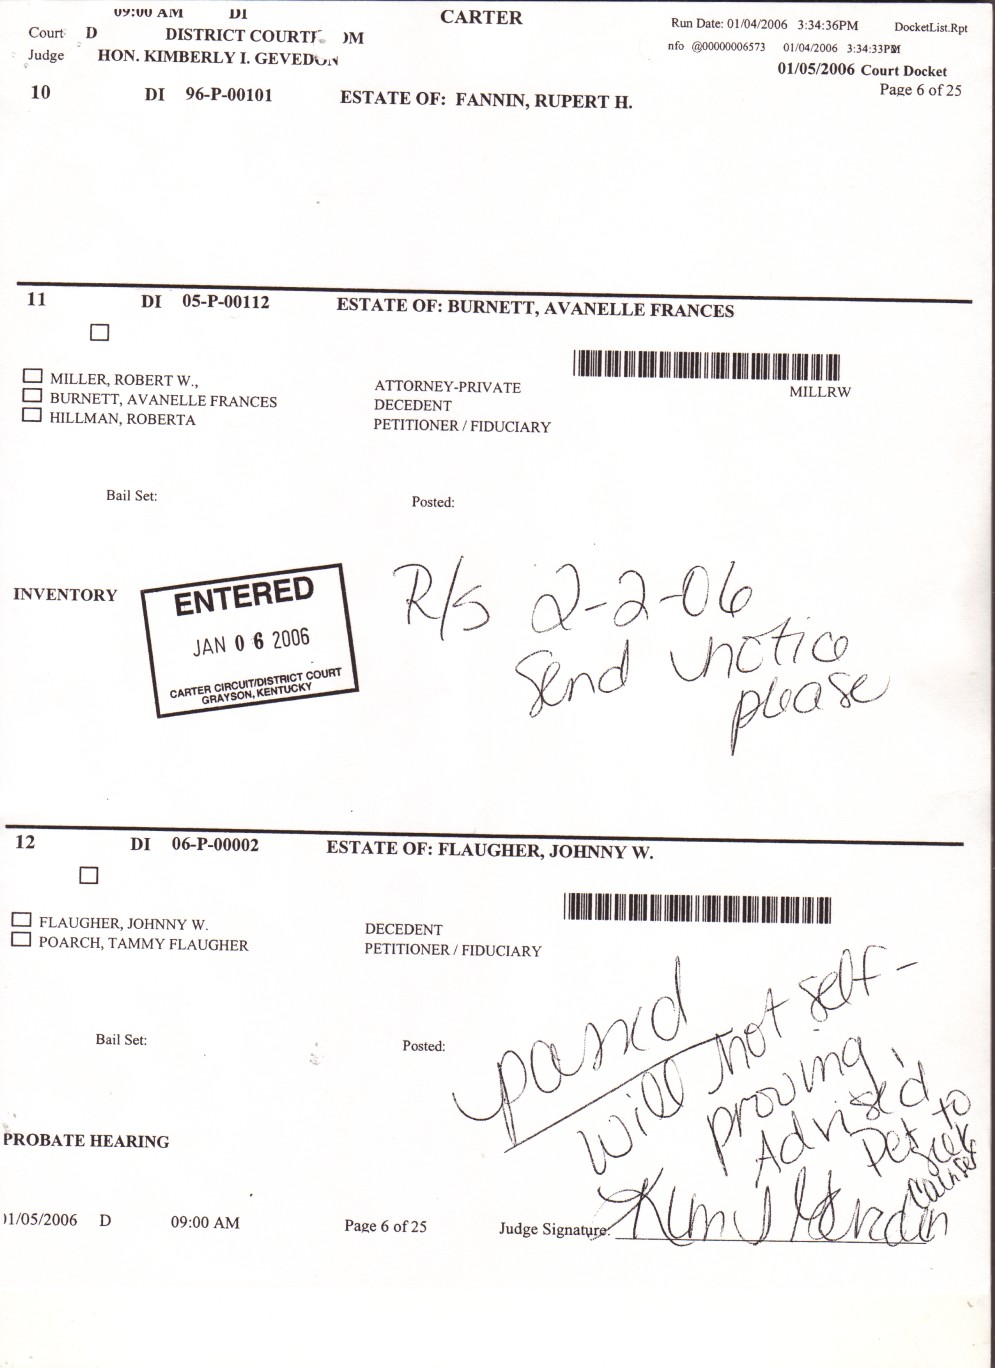 09:00 AM DI CARTER Run Date: 01/04/2006 3:34:36PM DocketList.Rpt
Court D DISTRICT COURTR nfo @00000006573 01/04/2006 3:34:33PM
Judge HON. KIMBERLY I. GEVEDON 01/05/2006 Court Docket
Page 6 of 25
10 DI 96-P-00101 ESTATE OF: FANNIN, RUPERT H.
11 DI 05-P-00112 ESTATE OF: BURNETT, AVANELLE FRANCES
MILLER, ROBERT W., ATTORNEY-PRIVATE MILLRW
BURNETT, AVANELLE FRANCES DECEDENT
HILLMAN, ROBERTA PETITIONER / FIDUCIARY
Bail Set: Posted:
INVENTORY
ENTERED
JAN 06 2006
CARTER CIRCUIT/DISTRICT COURT
GRAYSON, KENTUCKY
R/s 2-2-06
Send notice
please
12 DI 06-P-00002 ESTATE OF: FLAUGHER, JOHNNY W.
FLAUGHER, JOHNNY W. DECEDENT
POARCH, TAMMY FLAUGHER PETITIONER / FIDUCIARY
Bail Set: Posted:
passed
will not self-
proving.
Advised
Pet to
seek
counsel
PROBATE HEARING
01/05/2006 D 09:00 AM Page 6 of 25 Judge Signature: